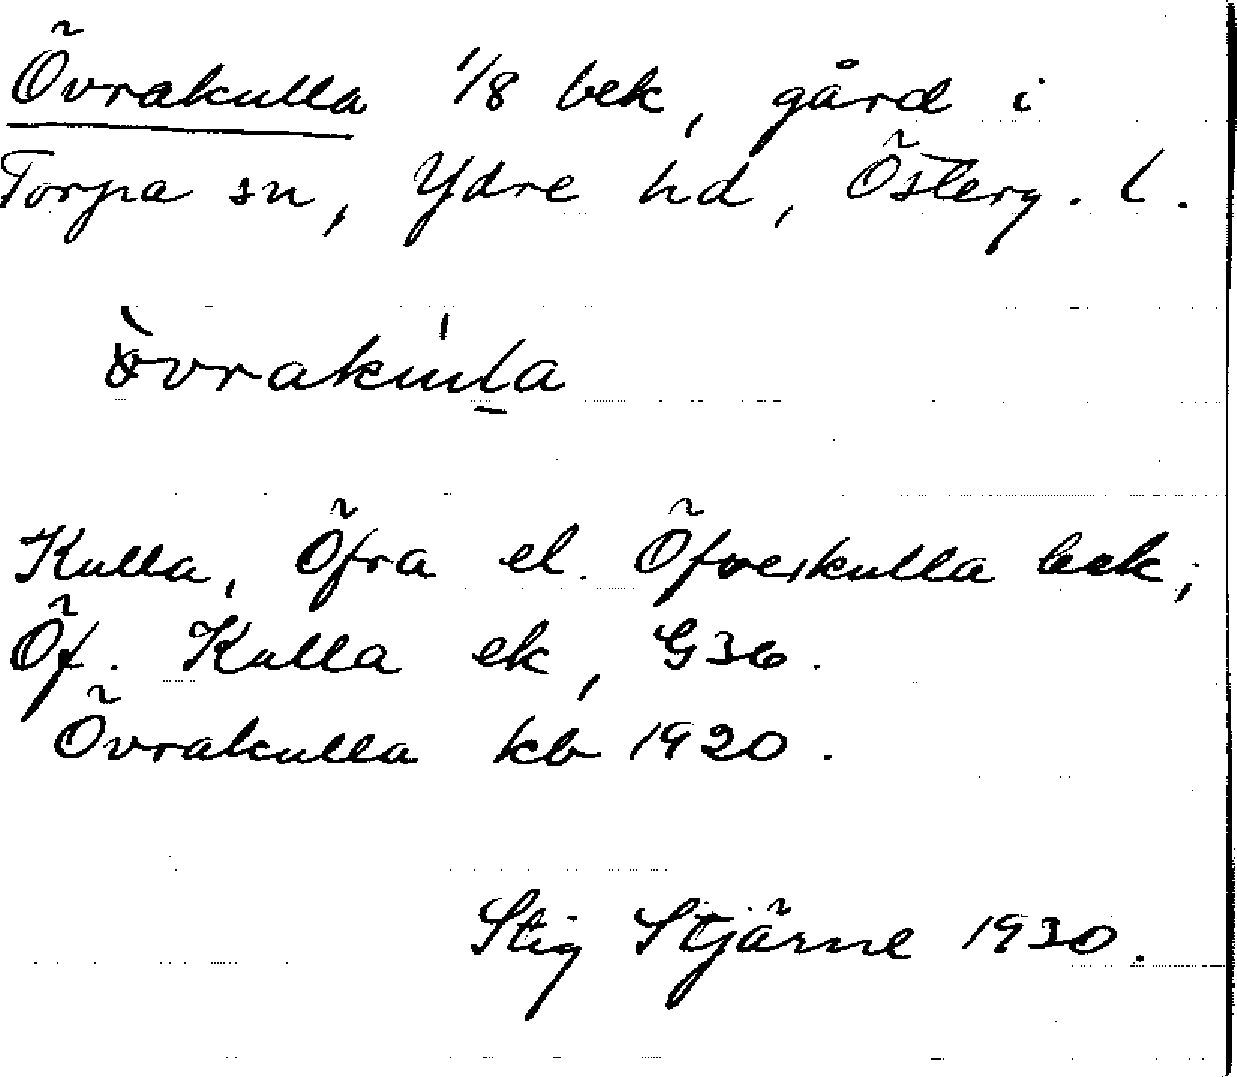 Övrakulla 1/8 bek, gård i
Torpa sn, Ydre hd, Österg. l.
Kulla, Öfra el. Öfverkulla bek;
Öf. Kulla ek, G36.
Övrakulla kb 1920.
Stig Stjärne 1930.